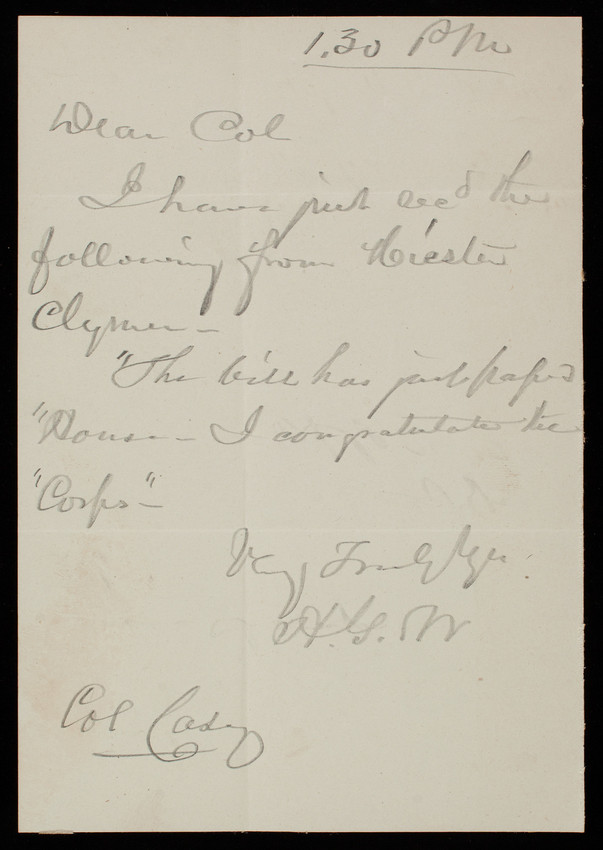 1.30 PM
Dear Col
I have just recd the
following from Hiester
Clymer —
"The bill has just passed
"House — I congratulate the
"Corps" —
Very Truly Yrs.
H. G. W
Col Casey